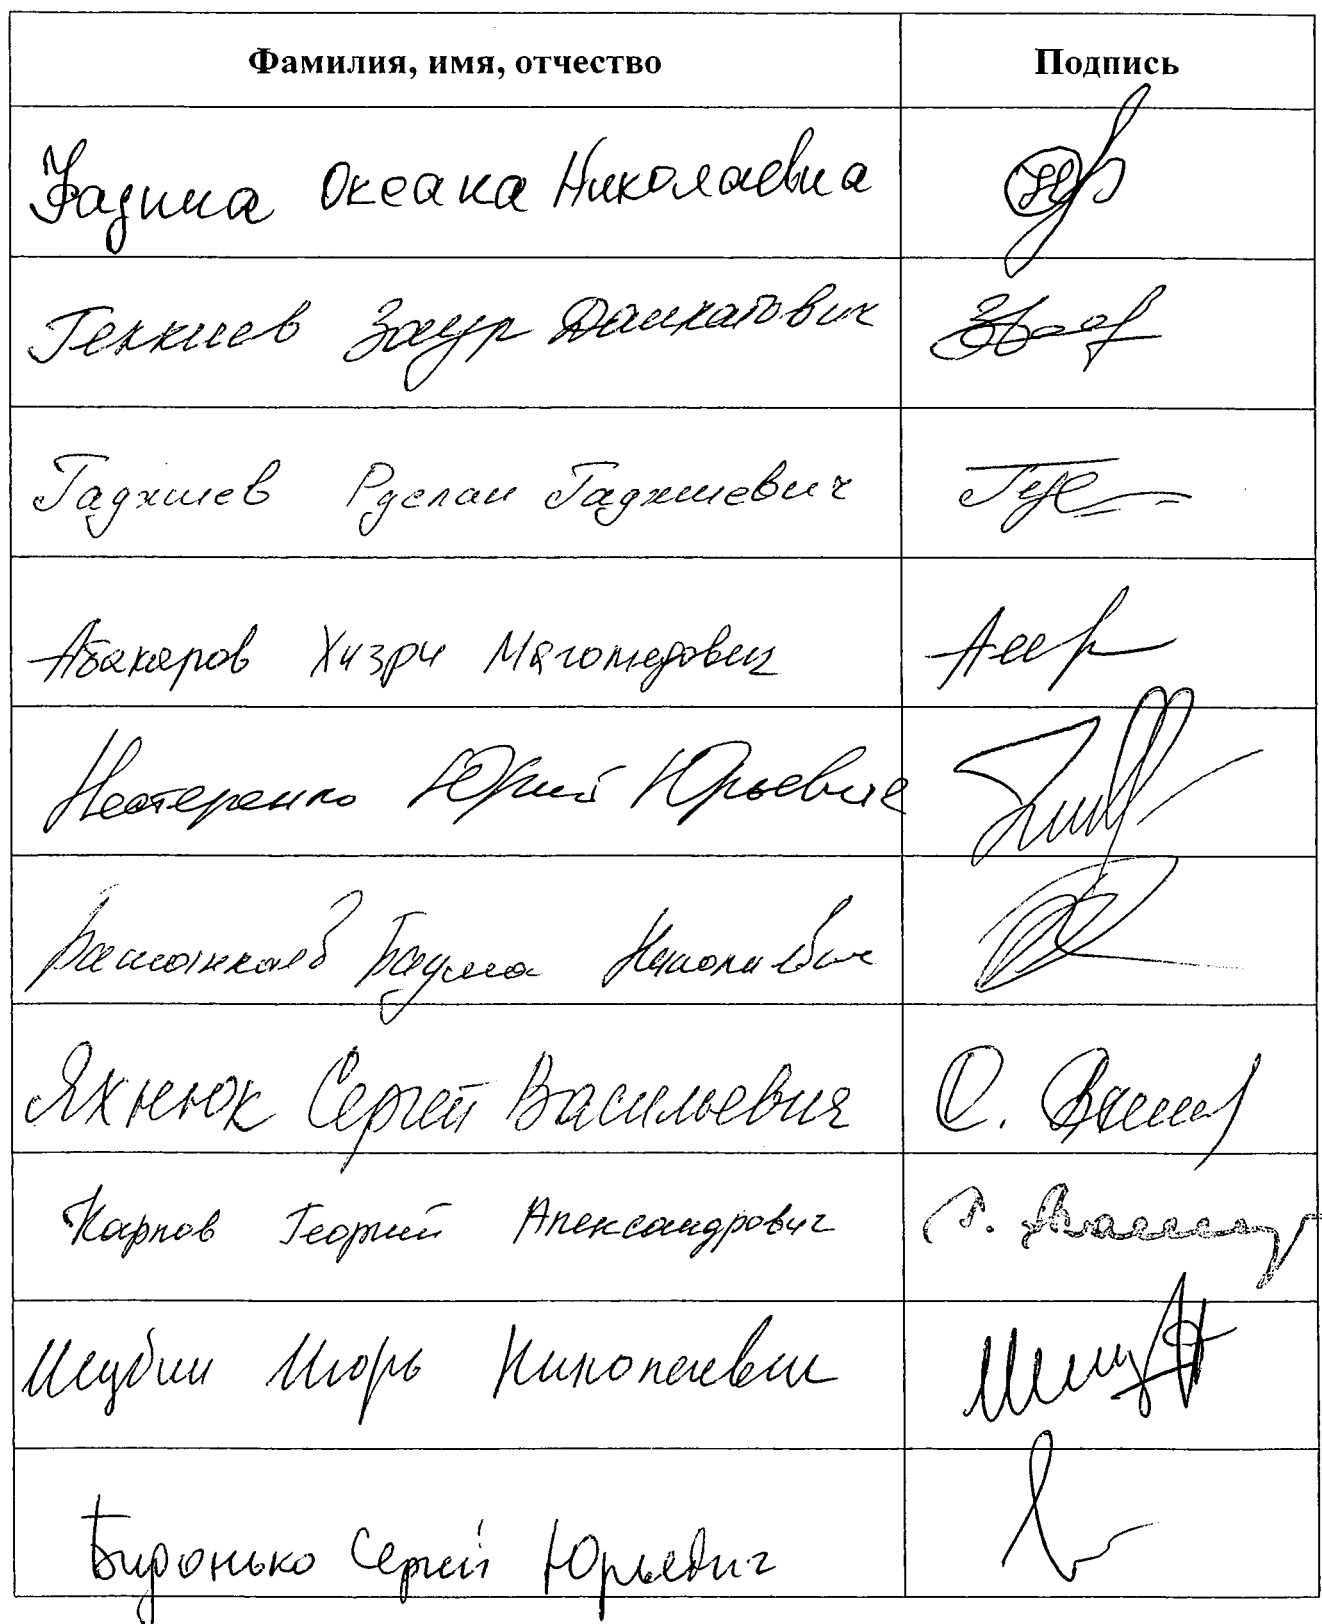 Фамилия, имя, отчество Подпись
Оксана Николаевна
Геккиев Заур Далхатович
Гаджиев Руслан Гаджиевич
Абакаров Хизри Магомедович
Нестеренко Юрий Юрьевич
Батма Николаевич
Яхнюк Сергей Васильевич
Карпов Георгий Александрович
Шубин Игорь Николаевич
Сергей Юрьевич